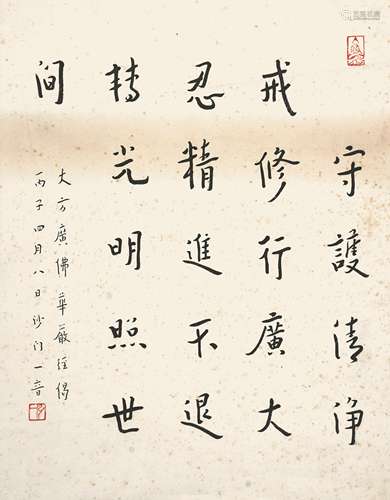 守護清净
戒修行廣大
忍精進不退
轉光明照世
間
大方廣佛華嚴經偈
丙子四月八日沙门一音